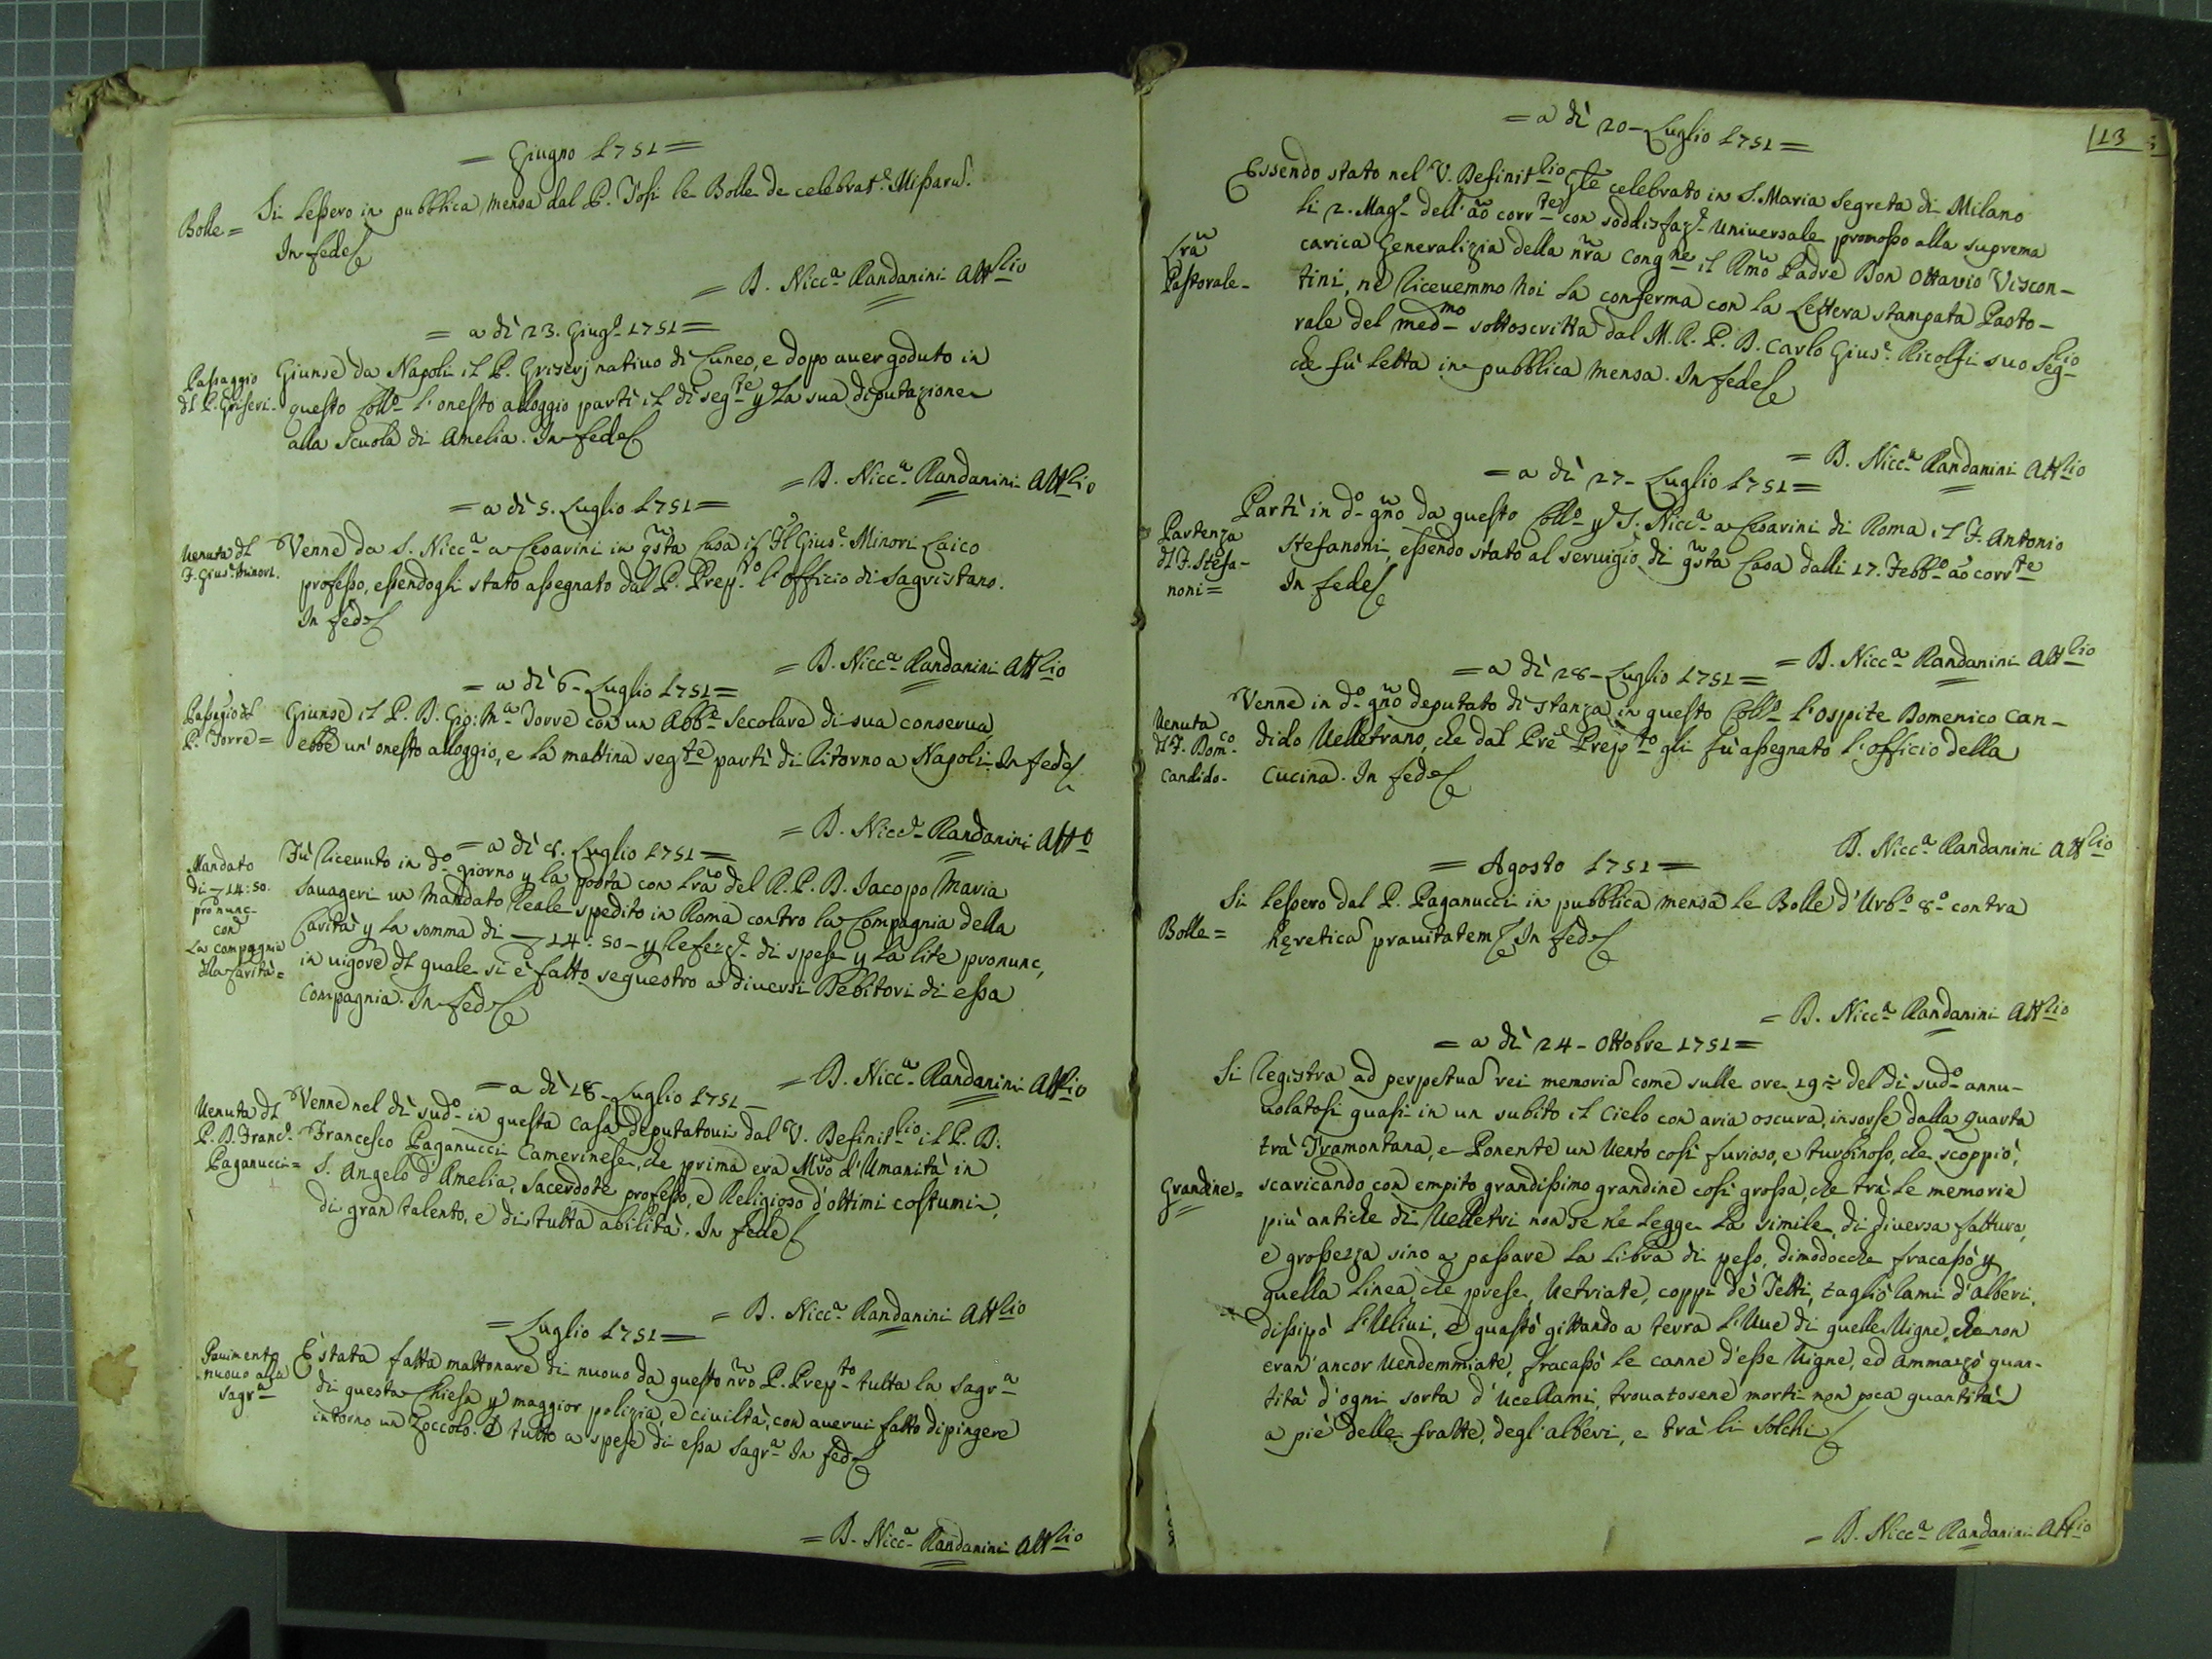 = Giugno 1751 =
Bolle =
Si lessero in pubblica mensa dal P. Tosi le Bolle de celebrat.e Missarũ.
In fede
= D. Nicc.a Randanini Att.lio
= a dì 23. Giug.o 1751 =
Passaggio
dl P. Griseri -
Giunse da Napoli il P. Griserj nativo di Cuneo, e dopo aver goduto in
questo Coll.o l'onesto alloggio partì il dì seg.te p la sua diputazione
alla scuola di Amelia. In fede
= D. Nicc.a Randanini Att.lio
= a dì 5. Luglio 1751 =
Venuta dl
F. Gius.e Minori.
Venne da S. Nicc.a a Cesarini in q̃sta Casa il Fl Gius.e Minori Laico
professo, essendogli stato assegnato dal P. Prep.to l'officio di Sagristano.
In fede
= D. Nicc.a Randanini Att.lio
= a dì 6 - Luglio 1751 =
Passagio dl
P. Torre =
Giunse il P. D. Gio: M.a Torre con un Abb.e Secolare di sua conserva,
ebbe un' onesto alloggio, e la mattina seg.te partì di ritorno a Napoli. In fede
= D. Nicc.a Randanini Att.o
= a dì 8. Luglio 1751 =
Mandato
di 14:50.
pronunc.
con
la compagnia
dlla Carità =
Fù ricevuto in d.o giorno p la posta con lr̃a del R. P. D. Iacopo Maria
Savageri un Mandato Reale spedito in Roma contro la Compagnia della
Carità p la somma di 14:50 - p di spese p la lite pronunc,
in vigore dl quale si è fatto sequestro a diversi Debitori di essa
Compagnia. In fede
= D. Nicc.a Randanini Att.lio
= a dì 18 - Luglio 1751 -
Venuta dl
P. D. Franc.o
Paganucci =
Venne nel dì sud.o in questa Casa deputatovi dal V. Definit.lio il P. D.
Francesco Paganucci Camerinese, che prima era Mr̃o d'Umanità in
S. Angelo d'Amelia, Sacerdote professo, e Religioso d'ottimi costumi,
di gran talento, e di tutta abilità. In fede
= D. Nicc.a Randanini Att.lio
= Luglio 1751 =
Pavimento
nuovo alla
Sagr.a
È stata fatta mattonare di nuovo da questo nr̃o P. Prep.to tutta la Sagr.a
di questa Chiesa p maggior polizia, e civiltà, con avervi fatto dipingere
intorno un Zoccolo. E tutto a spese di essa Sagr.a In fede
= D. Nicc.a Randanini Att.lio
13
= a dì 20 - Luglio 1751 =
Lr̃a
Pastorale -
Essendo stato nel V. Definit.lio Gl̃e celebrato in S. Maria Segreta di Milano
li 2. Mag.o dell' ão corr.te con soddisfaz.e universale promosso alla suprema
carica Generalizia della nr̃a Cong.ne il Rm̃o Padre Don Ottavio Viscon-
tini, ne ricevemmo noi la conferma con la Lettera stampata Pasto-
rale del med.mo sottoscritta dal M. R. P. D. Carlo Gius.e Ricolfi suo Seg.lio
che fù letta in pubblica mensa. In fede
= D. Nicc.a Randanini Att.lio
= a dì 27 - Luglio 1751 =
Partenza
dl F. Stefa-
noni =
Partì in d.o gño da questo Coll.o p S. Nicc.a a Cesarini di Roma il F. Antonio
Stefanoni, essendo stato al servigio di q̃sta Casa dalli 17. Febb.o ão corr.te
In fede
= D. Nicc.a Randanini Att.lio
= a dì 28 - Luglio 1751 =
Venuta
dl F. Dom.co
Candido -
Venne in d.o gño deputato di stanza in questo Coll.o l'ospite Domenico Can-
dido Velletrano, che dal Pre Prep.to gli fù assegnato l'officio della
Cucina. In fede
D. Nicc.a Randanini Att.lio
= Agosto 1751 =
Bolle =
Si lessero dal P. Paganucci in pubblica mensa le Bolle d'Urb.o 8.o contra
hęreticã pravitatem. In fede
= D. Nicc.a Randanini Att.lio
= a dì 24 - Ottobre 1751 =
Grandine =
Si registra ad perpetuã rei memoriã come sulle ore 19 del dì sud.o annu-
volatosi quasi in un subito il Cielo con aria oscura, insorse dalla quarta
trà Tramontana, e Ponente un Vento così furioso, e turbinoso, che scoppiò,
scaricando con empito grandissimo grandine così grossa, che trà le memorie
più antiche di Velletri non se ne legge la simile, di diversa fattura,
e grossezza sino a passare la libra di peso, dimodocche fracassò p
quella linea, che prese, Vetriate, coppi de' Tetti, tagliò rami d'alberi,
dissipò l'Ulivi, e guastò gittando a terra l'Uve di quelle Vigne, che non
eran' ancor Vendemmiate, fracassò le canne d'esse Vigne, ed ammazzò quan-
tità d'ogni sorta d'Ucellami, trovatosene morti non poca quantità
a piè delle fratte, degl'alberi, e trà li solchi
= D. Nicc.a Randanini Att.lio